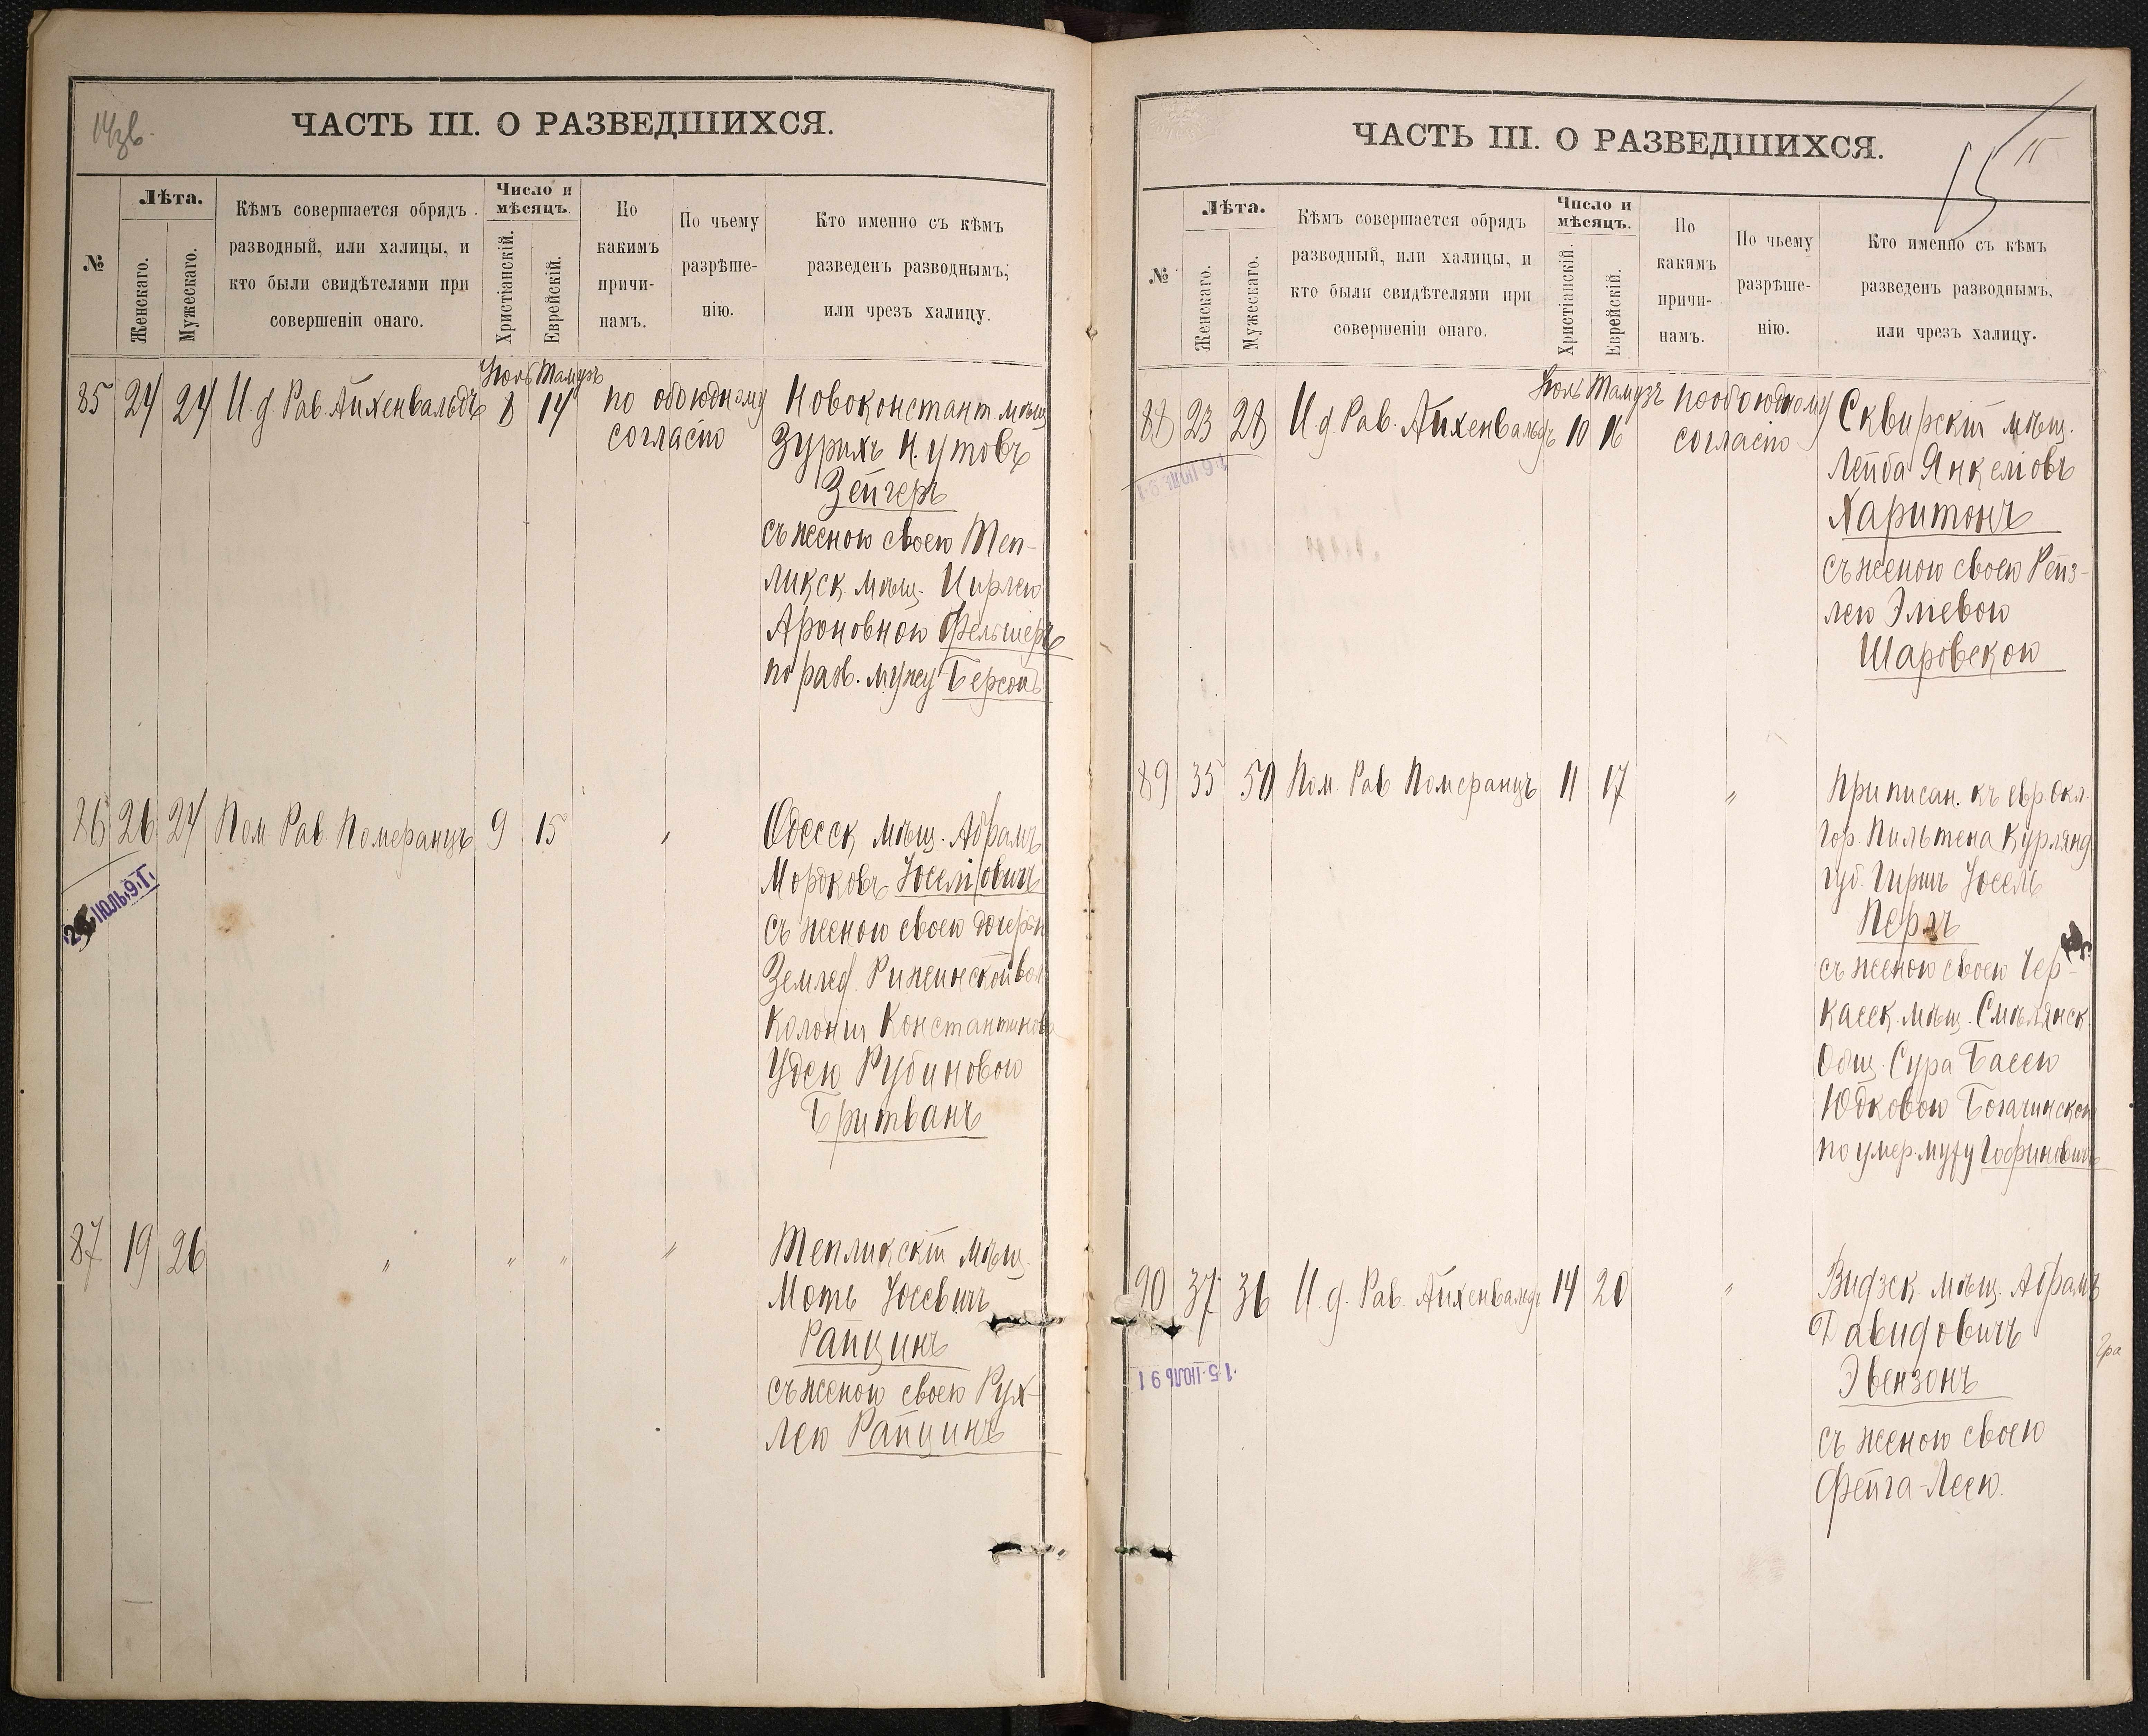 14 зв.
ЧАСТЬ III. О РАЗВЕДШИХСЯ.
№
Лѣта.
Женскаго.
Мужескаго.
Кѣмъ совершается обрядъ
разводный, или халицы, и
кто были свидѣтелями при
совершеніи онаго.
Число и
мѣсяцъ.
Христіанскій.
Еврейскій.
По
какимъ
причи-
намъ.
По чьему
разрѣше-
нію.
Кто именно съ кѣмъ
разведенъ разводнымъ,
или чрезъ халицу.
Іюль Тамузъ
85 24 24 И. д. Рав. Айхенвальдъ 8 14 по обоюдному
согласію
Новоконстант. мѣщ.
Зурихъ Н. утовъ
Зейгеръ
съ женою своею Теп-
ликск. мѣщ. Цирлею
Ароновною Фельшеръ
по разв. мужу Берсонъ
86 26 24 Пом. Рав. Померанцъ 9 15 "
ІЮЛЬ 9 Г.
Одесск. мѣщ. Абрамъ
Мордковъ Іоселіовичъ
съ женою своею дочерью
Землед. Рижинской вол
Колоніи Константинов
Удею Рубиновою
Бритванъ
87 19 26 " " " "
Тепликскій мѣщ.
Моть Іосевичъ
Рапцинъ
съ женою своею Рух-
лею Рапцинъ
ЧАСТЬ III. О РАЗВЕДШИХСЯ.
15 15
№
Лѣта.
Женскаго.
Мужескаго.
Кѣмъ совершается обрядъ
разводный, или халицы, и
кто были свидѣтелями при
совершеніи онаго.
Число и
мѣсяцъ.
Христіанскій.
Еврейскій.
По
какимъ
причи-
намъ.
По чьему
разрѣше-
нію.
Кто именно съ кѣмъ
разведенъ разводнымъ,
или чрезъ халицу.
Іюль Тамузъ
88 23 28 И. д. Рав. Айхенвальдъ 10 16 по обоюдному
согласію
Сквирскій мѣщ.
Лейба Янкеліовъ
Харитонъ
съ женою своею Рейз-
лею Эліевою
Шаровскою
89 35 50 Пом. Рав. Померанцъ 11 17 "
Приписан. къ евр. окл.
гор. Пильтена Курлянд
губ. Гиршъ Іосель
Перлъ
съ женою своею Чер-
касск. мѣщ. Смѣлянск.
Общ. Сура Басею
Юдковою Богачинскою
по умер. мужу Гофиновичъ
90 37 36 И. д. Рав. Айхенвальдъ 14 20 "
15 ІЮЛЬ 91
Видзск. мѣщ. Абрамъ
Давидовичъ
Эвензонъ
съ женою своею
Фейга-Леею.